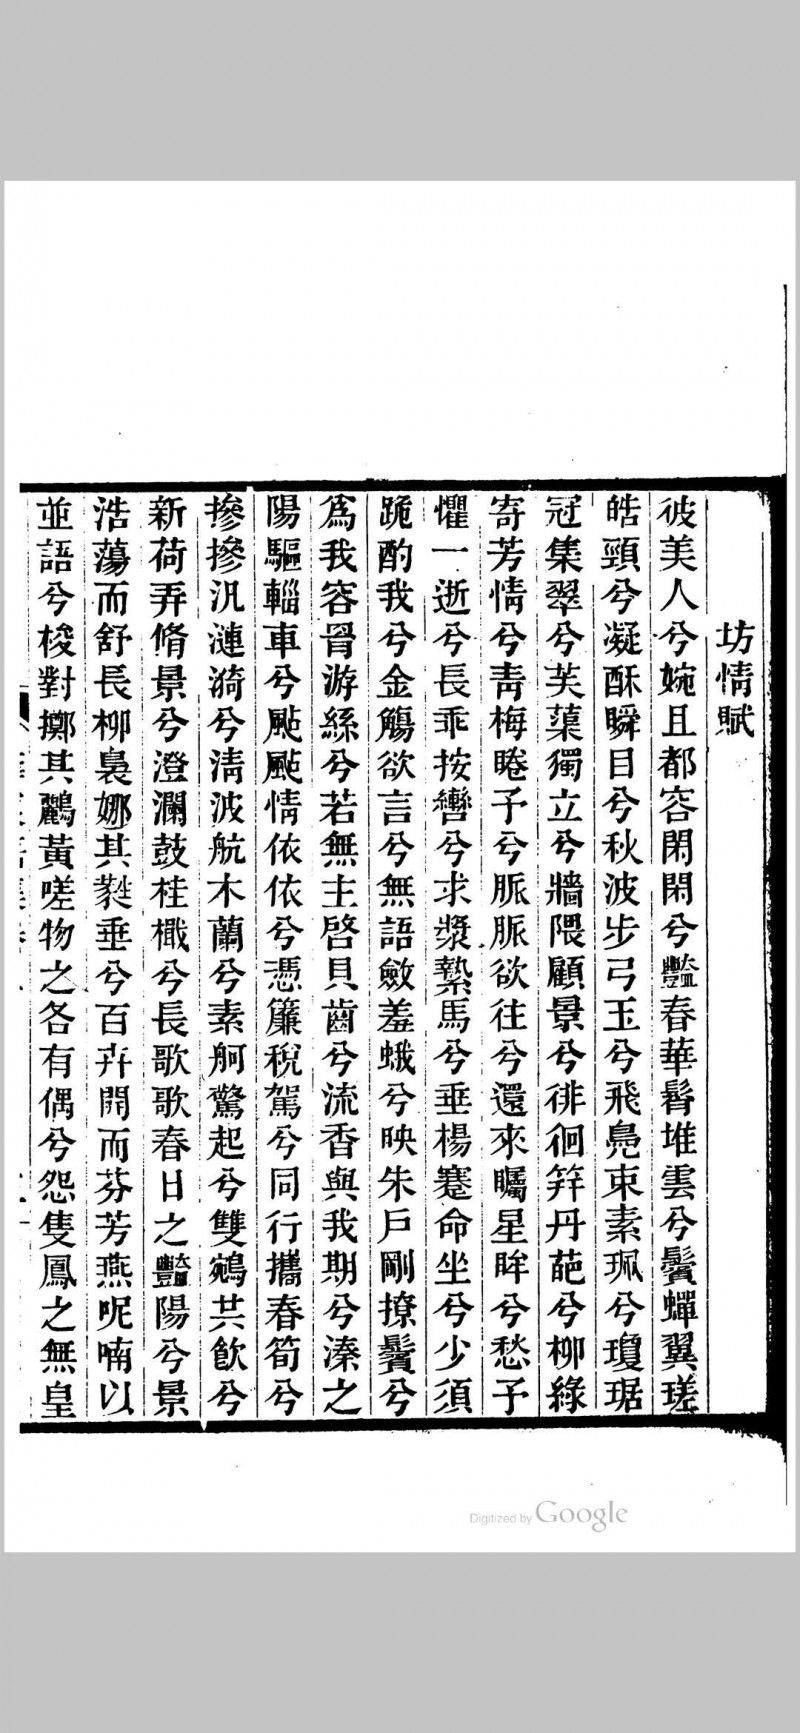 坊情賦
彼美人兮婉且都容閑閑兮豔春華髾堆雲兮鬢蟬翼瑳
皓頸兮凝酥瞬目兮秋波步弓玉兮飛鳧束素珮兮瓊琚
冠集翠兮芙蕖獨立兮牆隈顧景兮徘徊筓丹葩兮柳綠
寄芳情兮靑梅睠予兮脈脈欲往兮還來矚星眸兮愁予
懼一逝兮長乖按轡兮求漿縶馬兮垂楊蹇命坐兮少須
跪酌我兮金觴欲言兮無語斂羞蛾兮映朱戶剛撩鬢兮
爲我容罥游絲兮若無主啓貝齒兮流香與我期兮溱之
陽驅輜車兮颭颭情依依兮憑簾稅駕兮同行攜春筍兮
摻摻汎漣漪兮淸波航木蘭兮素舸驚起兮雙鵷共飮兮
新荷弄脩景兮澄瀾鼓桂檝兮長歌歌春日之豔陽兮景
浩蕩而舒長柳裊娜其㲯垂兮百卉開而芬芳燕呢喃以
並語兮梭對擲其鸝黃嗟物之各有偶兮怨隻鳳之無皇
Digitized by Google